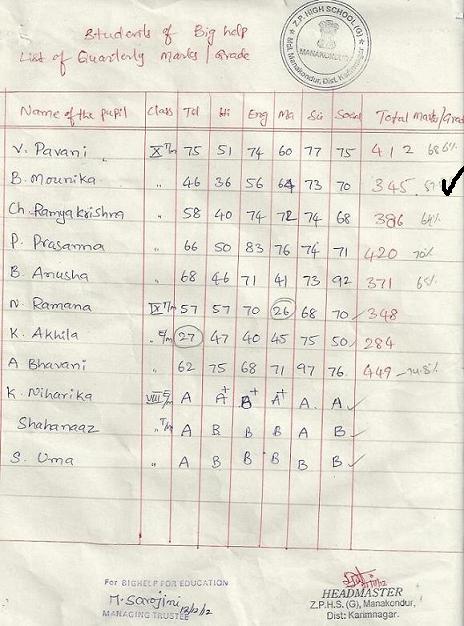 Students of Big help
List of Quarterly Marks / Grade
Z.P. HIGH SCHOOL (G)
MANAKONDUR
Mdl. Manakondur, Dist. Karimnagar.
Name of the pupil Class Tel Hi Eng Ma Sci Social Total Marks/Grade
V. Pavani X T/m 75 51 74 60 77 75 412 68.6%
B. Mounika " 46 36 56 64 73 70 345
Ch. Ramyakrishna " 58 40 74 72 74 68 386 64%
P. Prasanna " 66 50 83 76 74 71 420 70%
B. Anusha " 68 46 71 41 73 92 371 65%
N. Ramana IX T/m 57 57 70 26 68 70 348
K. Akhila " E/m 27 47 40 45 75 50 284
A Bhavani " 62 75 68 71 97 76 449 74.8%
K. Niharika VIII E/m A A+ B+ A+ A A
Shahanaaz " T/m A B B B A B
S. Uma " A B B B B B
For BIGHELP FOR EDUCATION
M. Sarojini 13/2/12
MANAGING TRUSTEE
HEADMASTER
Z.P.H.S. (G), Manakondur,
Dist: Karimnagar.